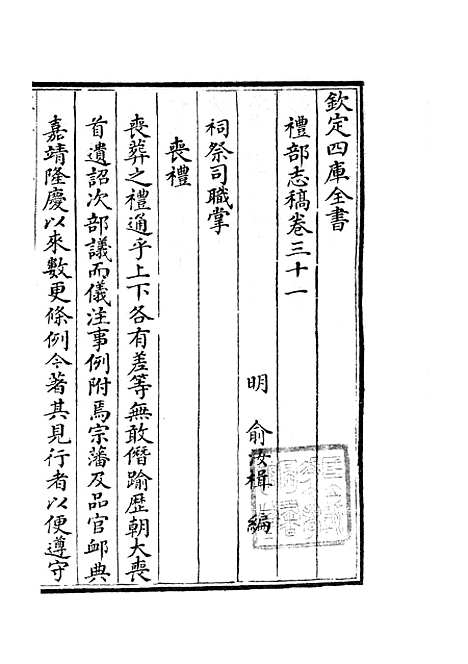 欽定四庫全書
禮部志稿卷三十一
明 俞汝楫 編
祠祭司職掌
喪禮
喪葬之禮通乎上下各有差等無敢僭踰歴朝大喪
首遺詔次部議而儀注事例附焉宗藩及品官䘏典
嘉靖隆慶以來數更條例今著其見行者以便遵守